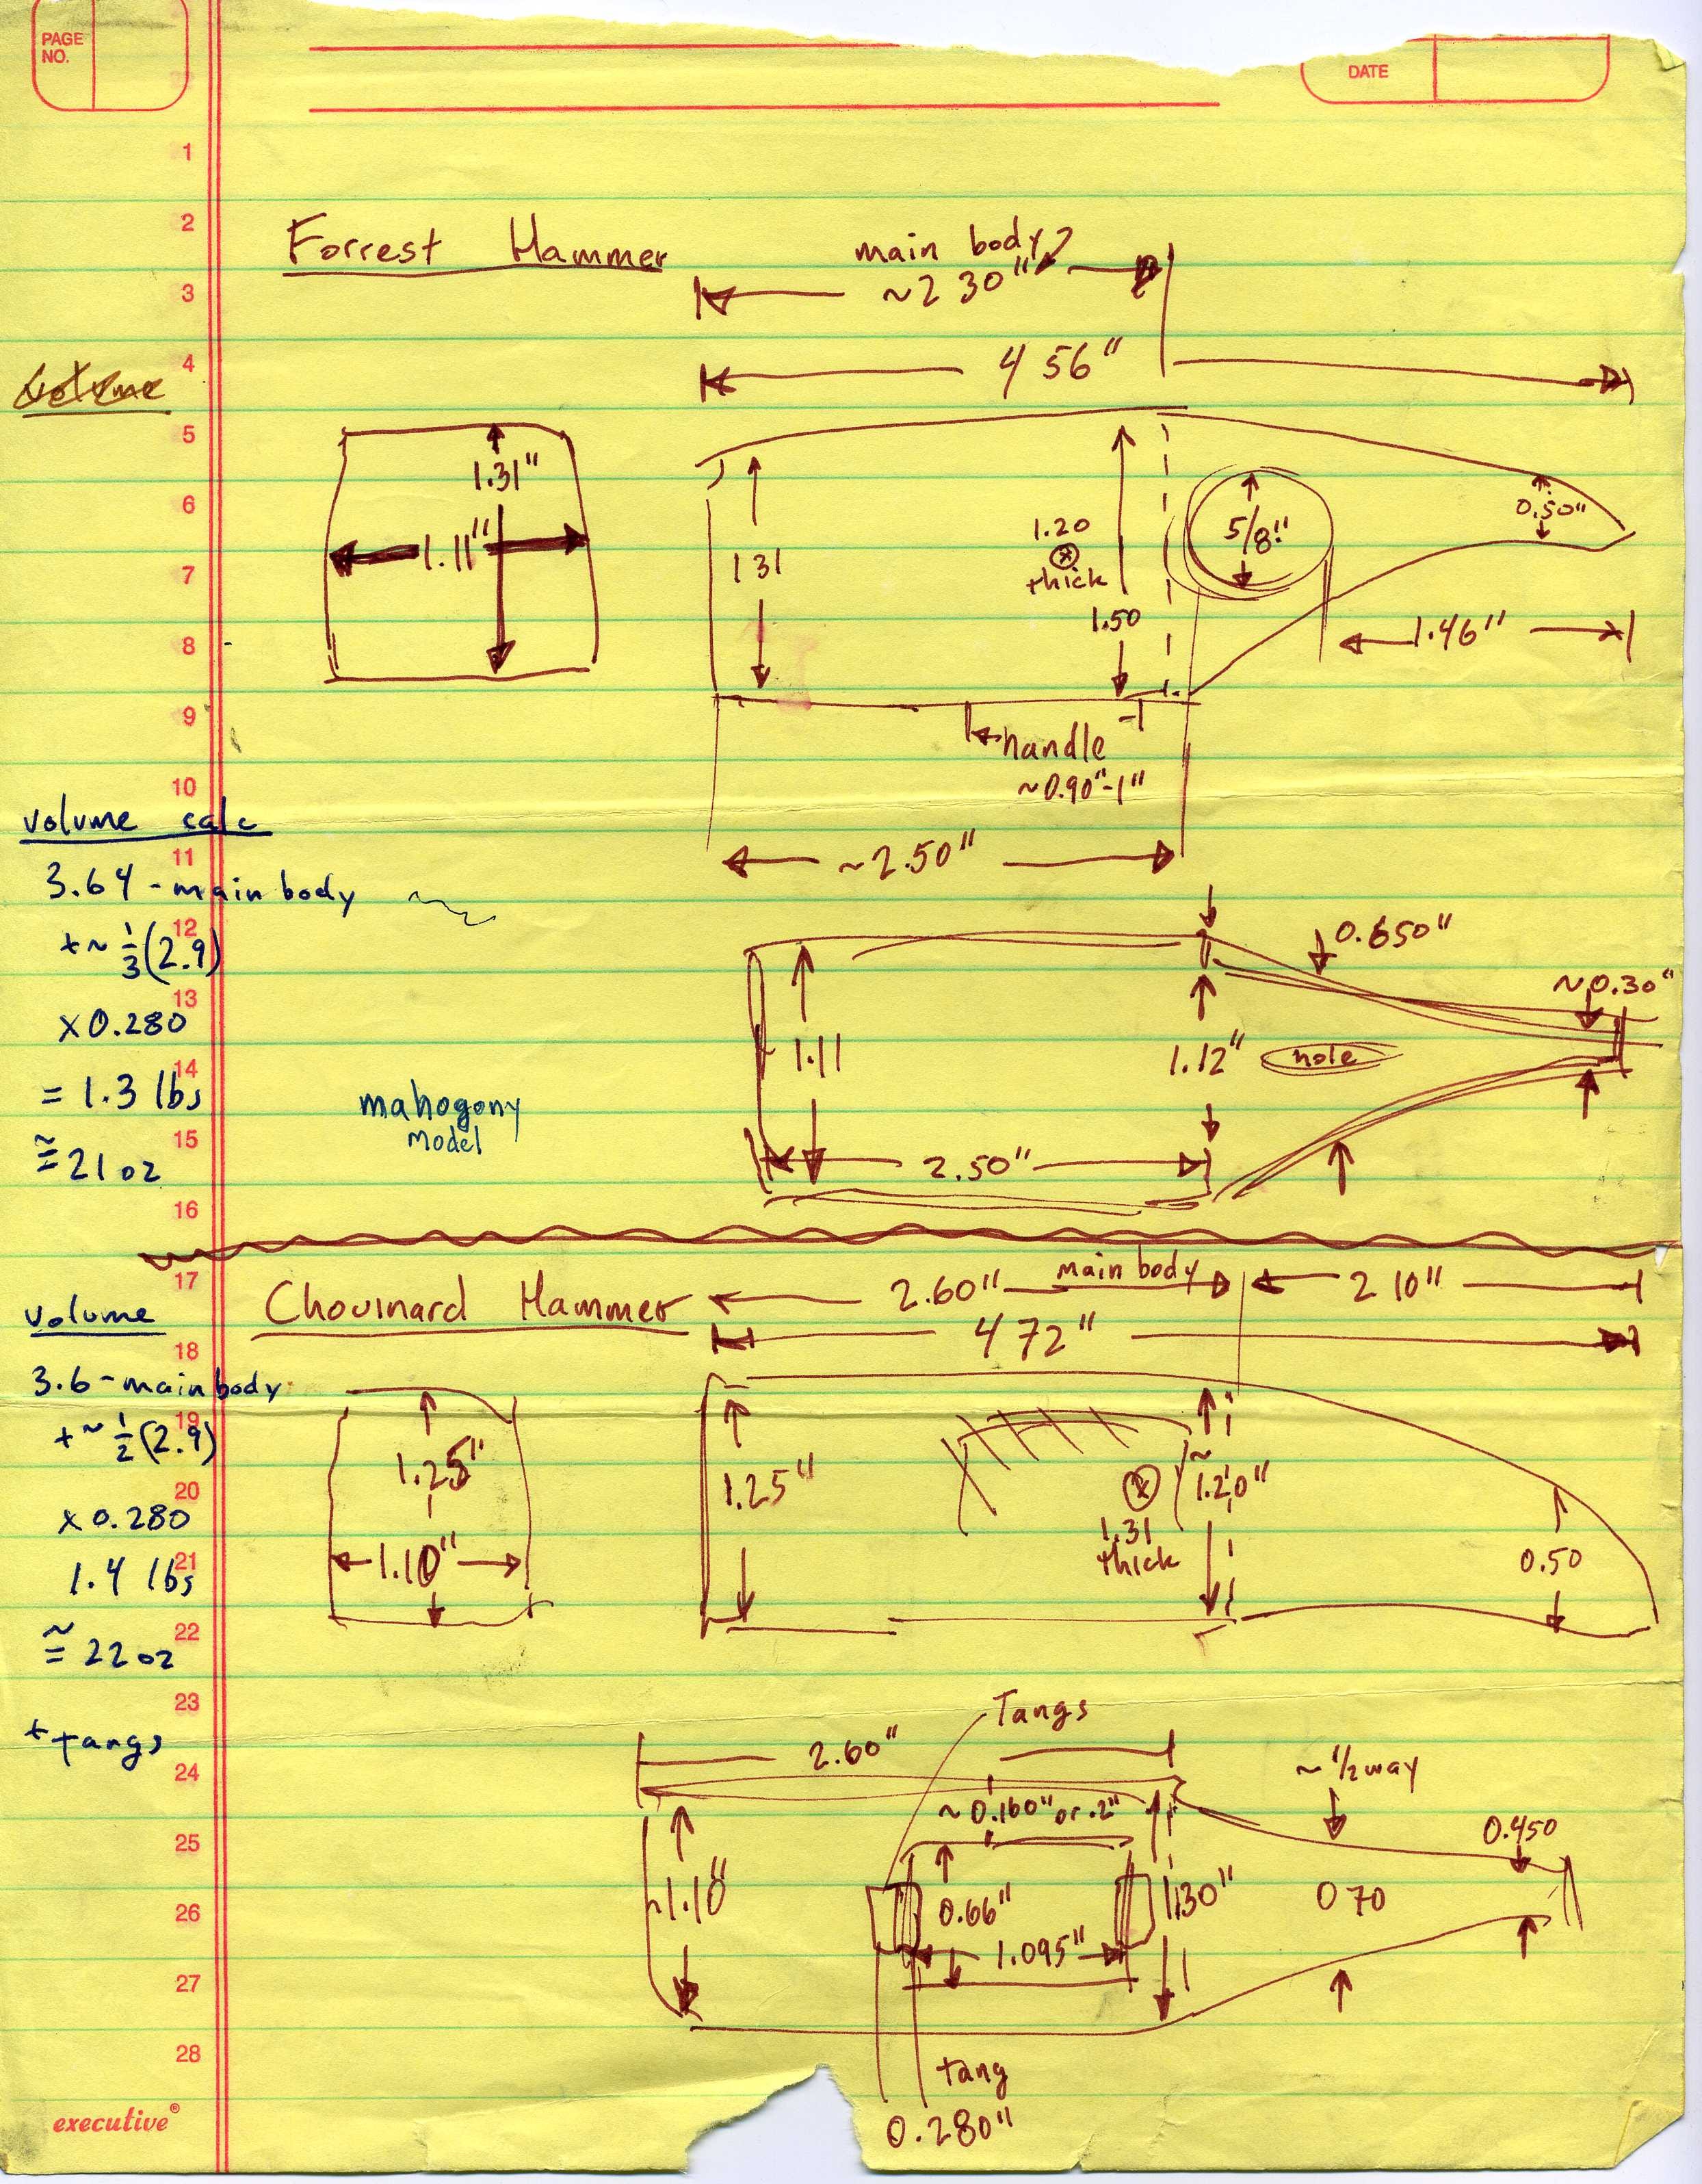 PAGE
NO.
DATE
1
2
Forrest Hammer
main body
3
~2 30"
4
4 56"
5
1.31"
6
0.50"
5/8"
1.20
thick
1.11"
7
1 31
8
1.50
1.46"
9
handle
~0.90"-1"
10
volume calc
11
~2.50"
3.64 - main body
12
+ ~ 1/3 (2.9)
0.650"
~0.30"
13
x 0.280
14
1.11
1.12"
hole
= 1.3 lbs
mahogony
model
15
≅ 21 oz
2.50"
16
17
Chouinard Hammer
2.60"
main body
2 10"
volume
4 72"
18
3.6 - main body
19
+ ~ 1/2 (2.9)
1.25"
1.25"
~1.20"
20
x 0.280
1.31
thick
0.50
21
1.10"
1.4 lbs
22
≅ 22 oz
23
Tangs
+ tangs
24
2.60"
~ 1/2 way
~0.160" or .2"
25
0.450
~1.10"
0.66"
1.30"
0 70
26
1.095"
27
28
tang
0.280"
executive®